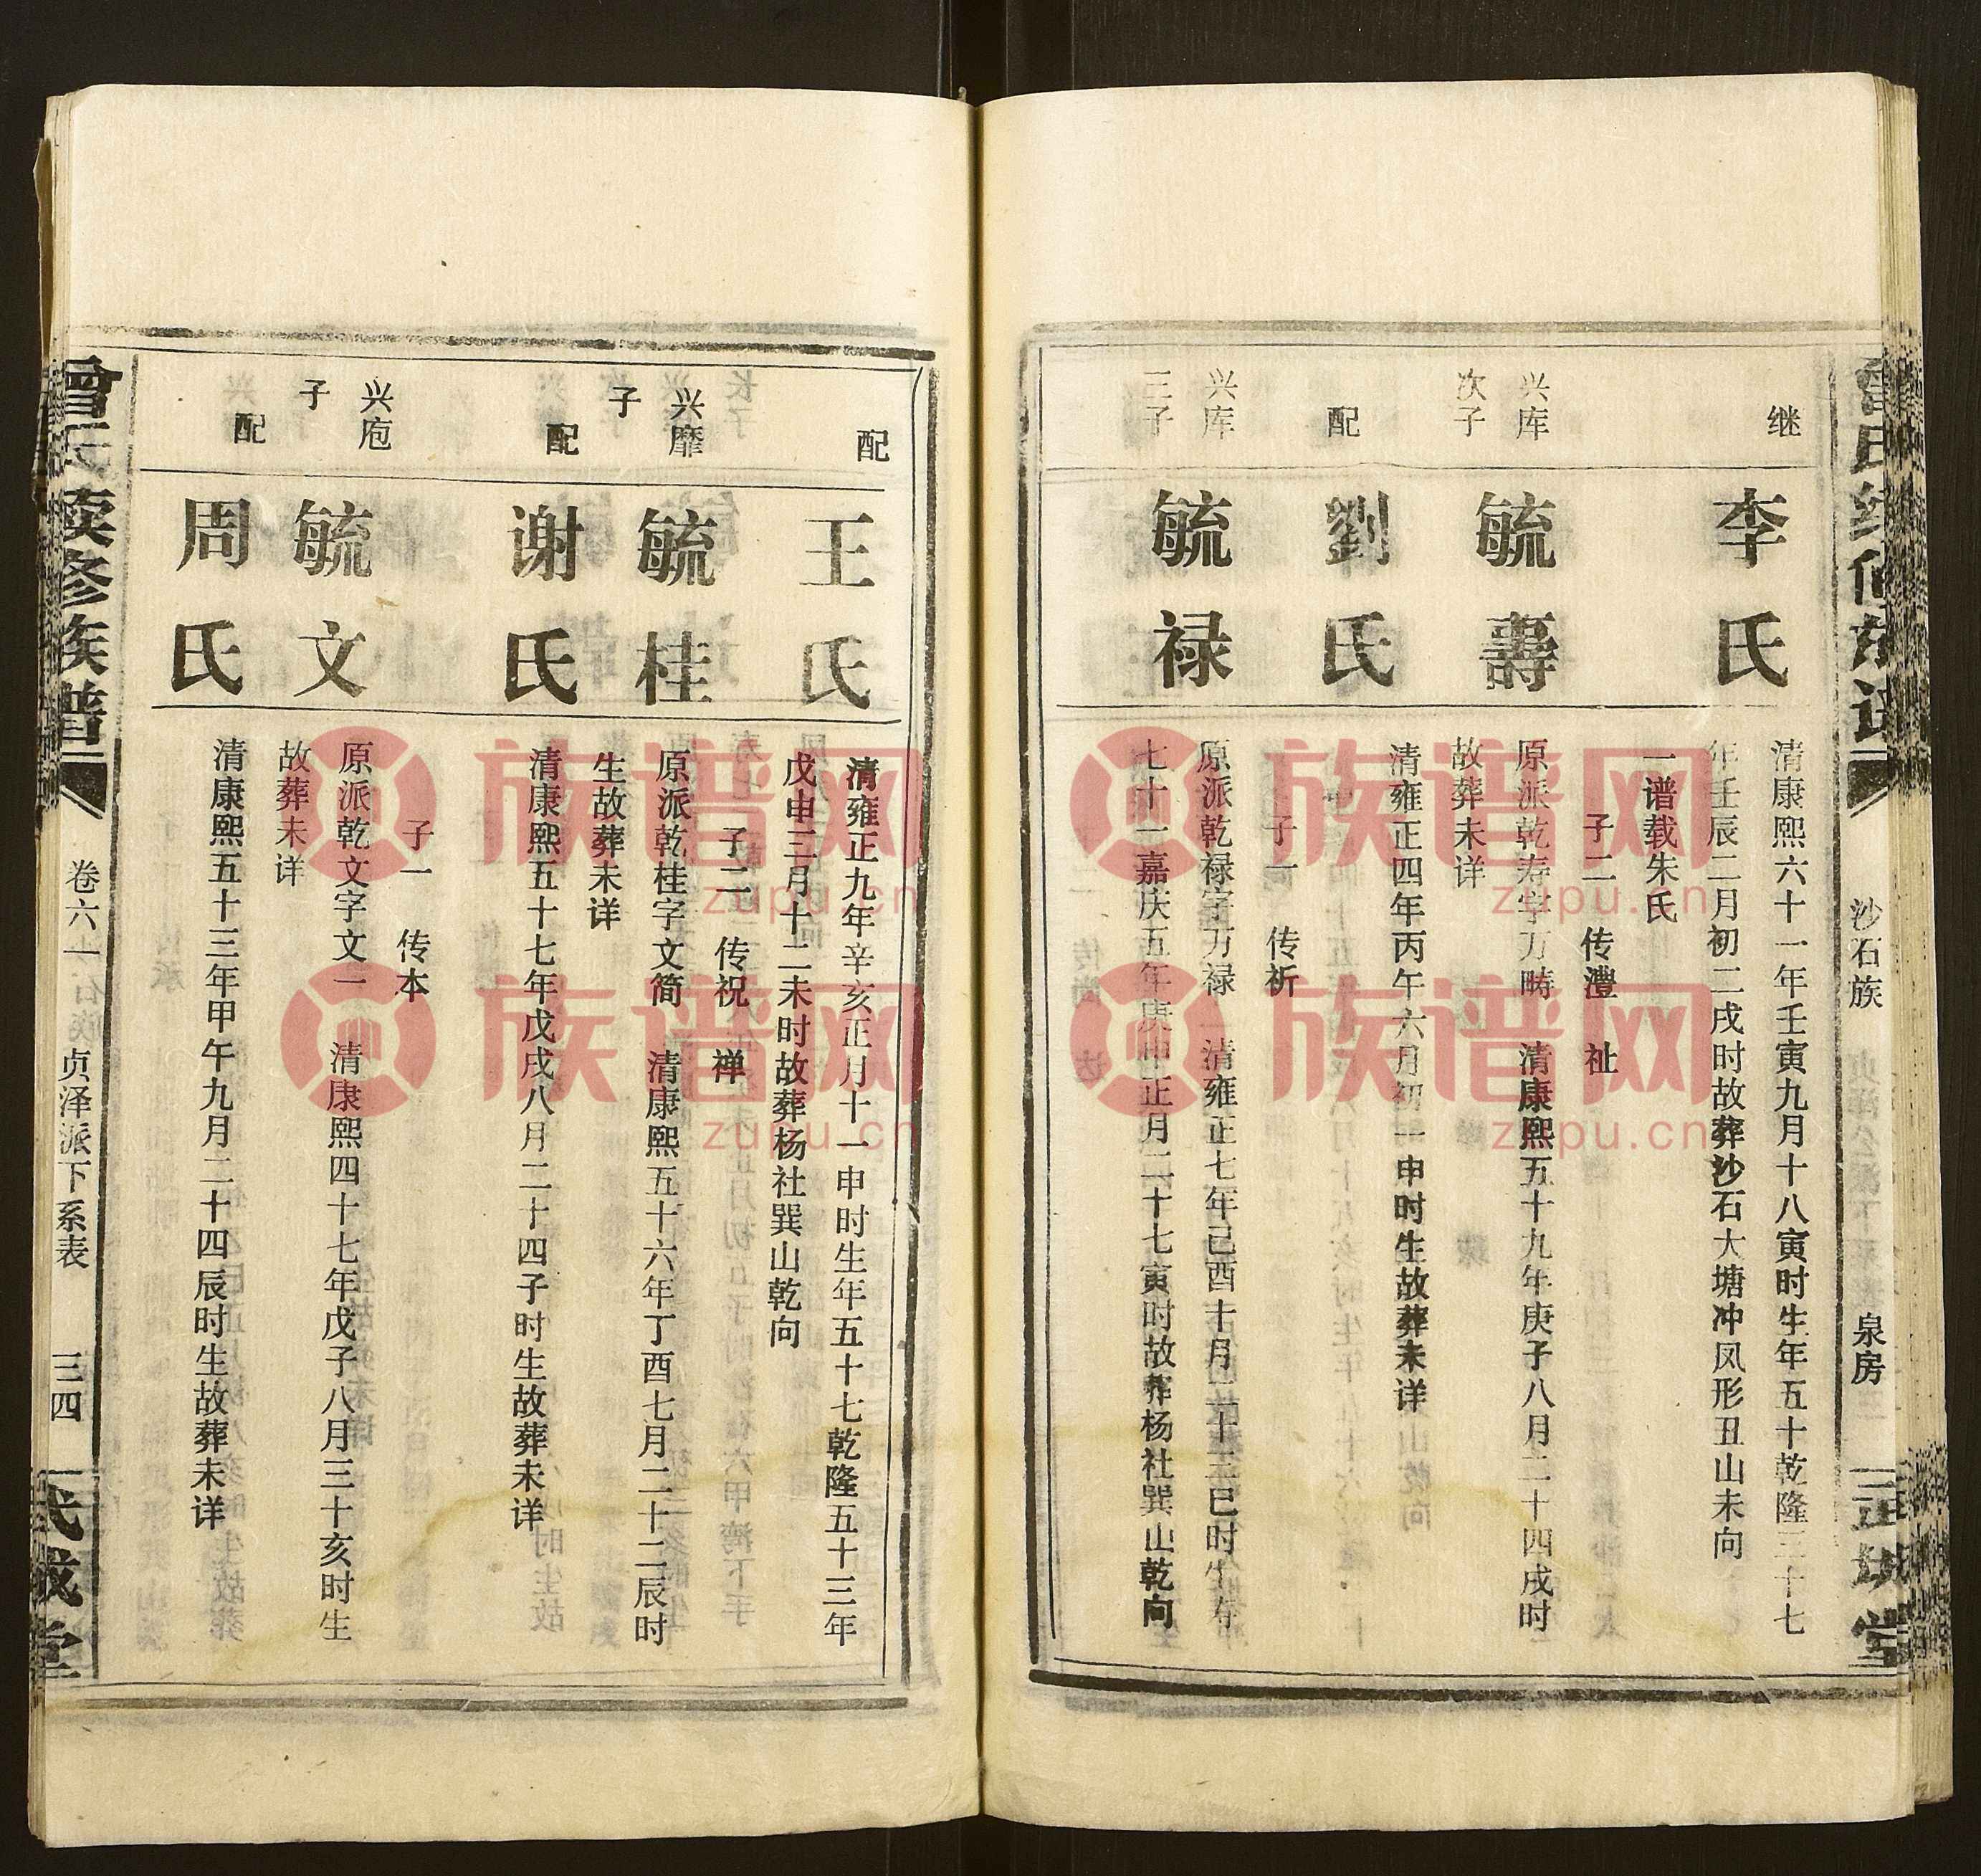 曾氏续修族谱
沙石族
泉房
三省堂
继
李氏
清康熙六十一年壬寅九月十八寅时生年五十乾隆三十七
年壬辰二月初二戌时故葬沙石大塘冲凤形丑山未向
一谱载朱氏
子二 传澧 祉
兴库
次子
毓壽
原派乾寿字万畴 清康熙五十九年庚子八月二十四戌时
故葬未详
配
劉氏
清雍正四年丙午六月初一申时生故葬未详
子一 传祈
兴库
三子
毓禄
原派乾禄字万禄 清雍正七年己酉十月二十三巳时生寿
七十一嘉庆五年庚申正月二十七寅时故葬杨社巽山乾向
配
王氏
清雍正九年辛亥正月十一申时生年五十七乾隆五十三年
戊申三月十二未时故葬杨社巽山乾向
子二 传祝 禅
兴靡
子
毓桂
原派乾桂字文简 清康熙五十六年丁酉七月二十二辰时
生故葬未详
配
谢氏
清康熙五十七年戊戌八月二十四子时生故葬未详
子一 传本
兴庖
子
毓文
原派乾文字文一 清康熙四十七年戊子八月三十亥时生
故葬未详
配
周氏
清康熙五十三年甲午九月二十四辰时生故葬未详
曾氏续修族谱
卷六十
贞泽派下系表
三四
族谱网
zupu.cn
族谱网
zupu.cn
族谱网
zupu.cn
族谱网
zupu.cn